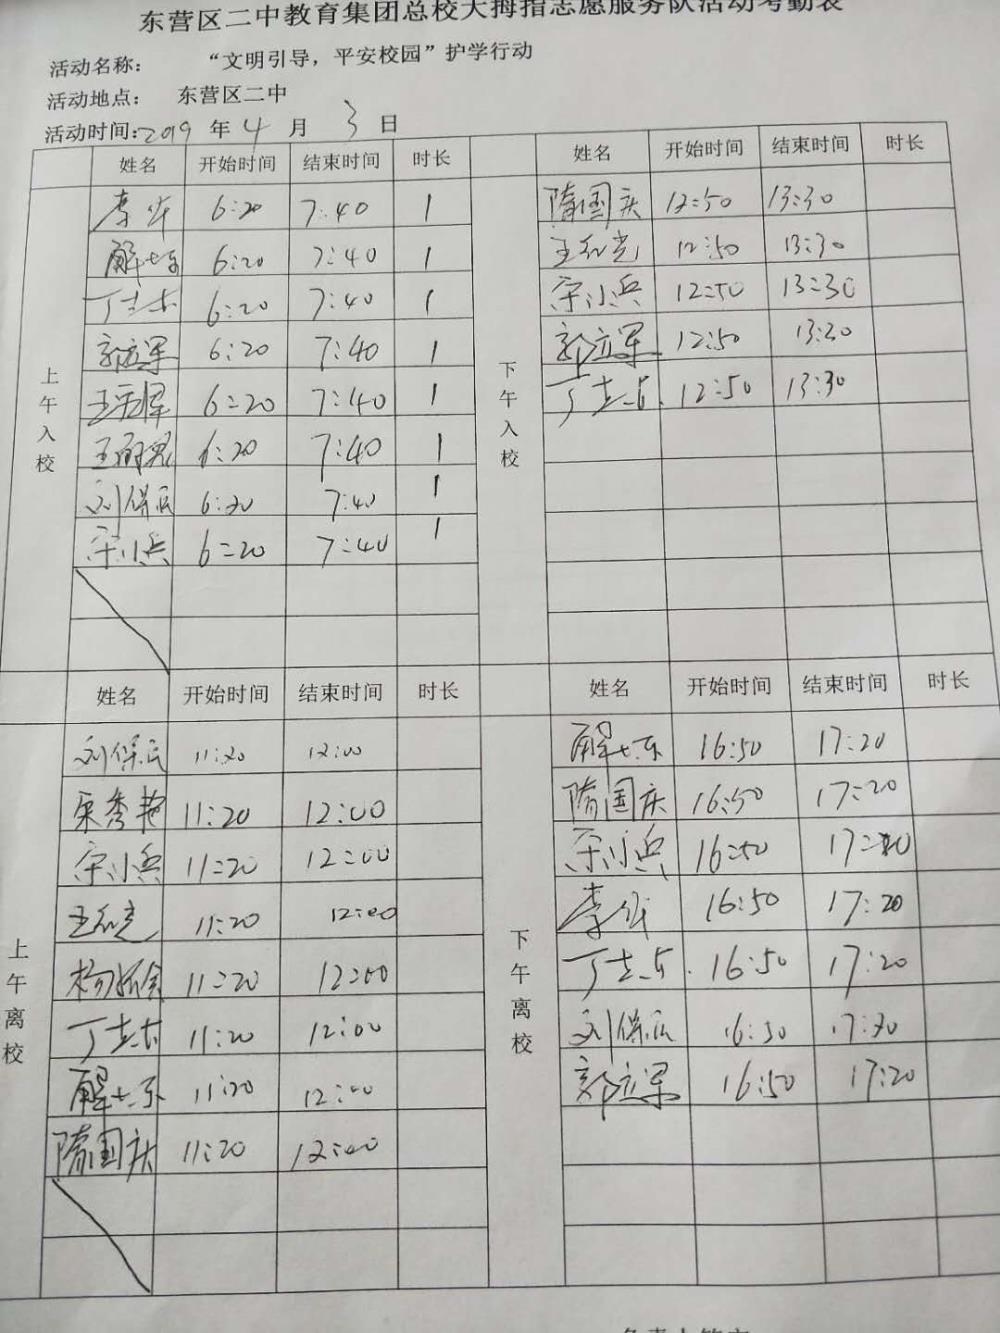 东营区二中教育集团总校大拇指志愿服务队活动考勤表
活动名称： “文明引导，平安校园”护学行动
活动地点： 东营区二中
活动时间：2019 年 4 月 3 日
上午入校
姓名 开始时间 结束时间 时长
李华 6:20 7:40 1
解士东 6:20 7:40 1
丁志杰 6:20 7:40 1
郭立军 6:20 7:40 1
6:20 7:40 1
6:20 7:40 1
刘保民 6:20 7:40 1
宋小兵 6:20 7:40 1
下午入校
姓名 开始时间 结束时间 时长
隋国庆 12:50 13:30
12:50 13:30
宋小兵 12:50 13:30
郭立军 12:50 13:30
12:50 13:30
上午离校
姓名 开始时间 结束时间 时长
刘保民 11:20 12:00
秀艳 11:20 12:00
宋小兵 11:20 12:00
11:20 12:00
11:20 12:00
11:20 12:00
解士东 11:20 12:00
隋国庆 11:20 12:00
下午离校
姓名 开始时间 结束时间 时长
解士东 16:50 17:20
隋国庆 16:50 17:20
宋小兵 16:50 17:20
李华 16:50 17:20
16:50 17:20
刘保民 16:50 17:20
郭立军 16:50 17:20